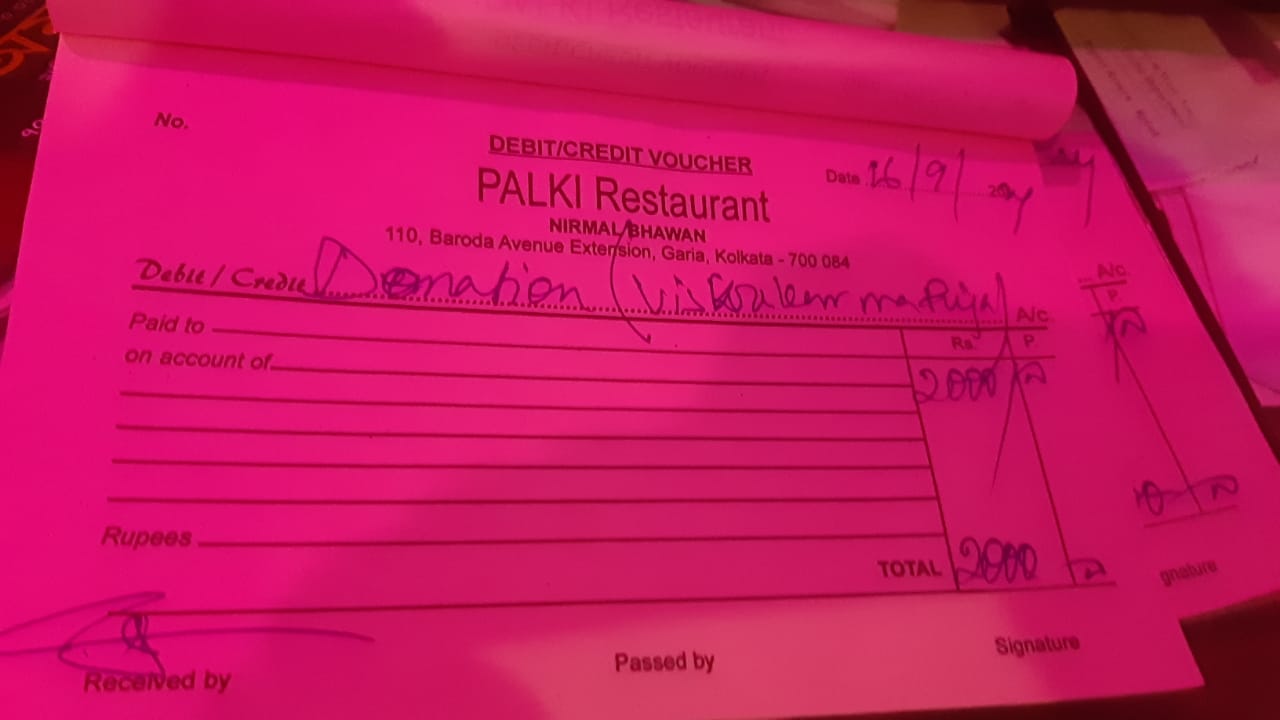 No.
DEBIT/CREDIT VOUCHER
Date 16/9/
PALKI Restaurant
NIRMAL BHAWAN
110, Baroda Avenue Extension, Garia, Kolkata - 700 084
Debit / Credit Donation ( A/c.
Paid to
Rs. P.
on account of
2000
Rupees
TOTAL 2000
Received by
Passed by
Signature
A/c.
P.
gnature